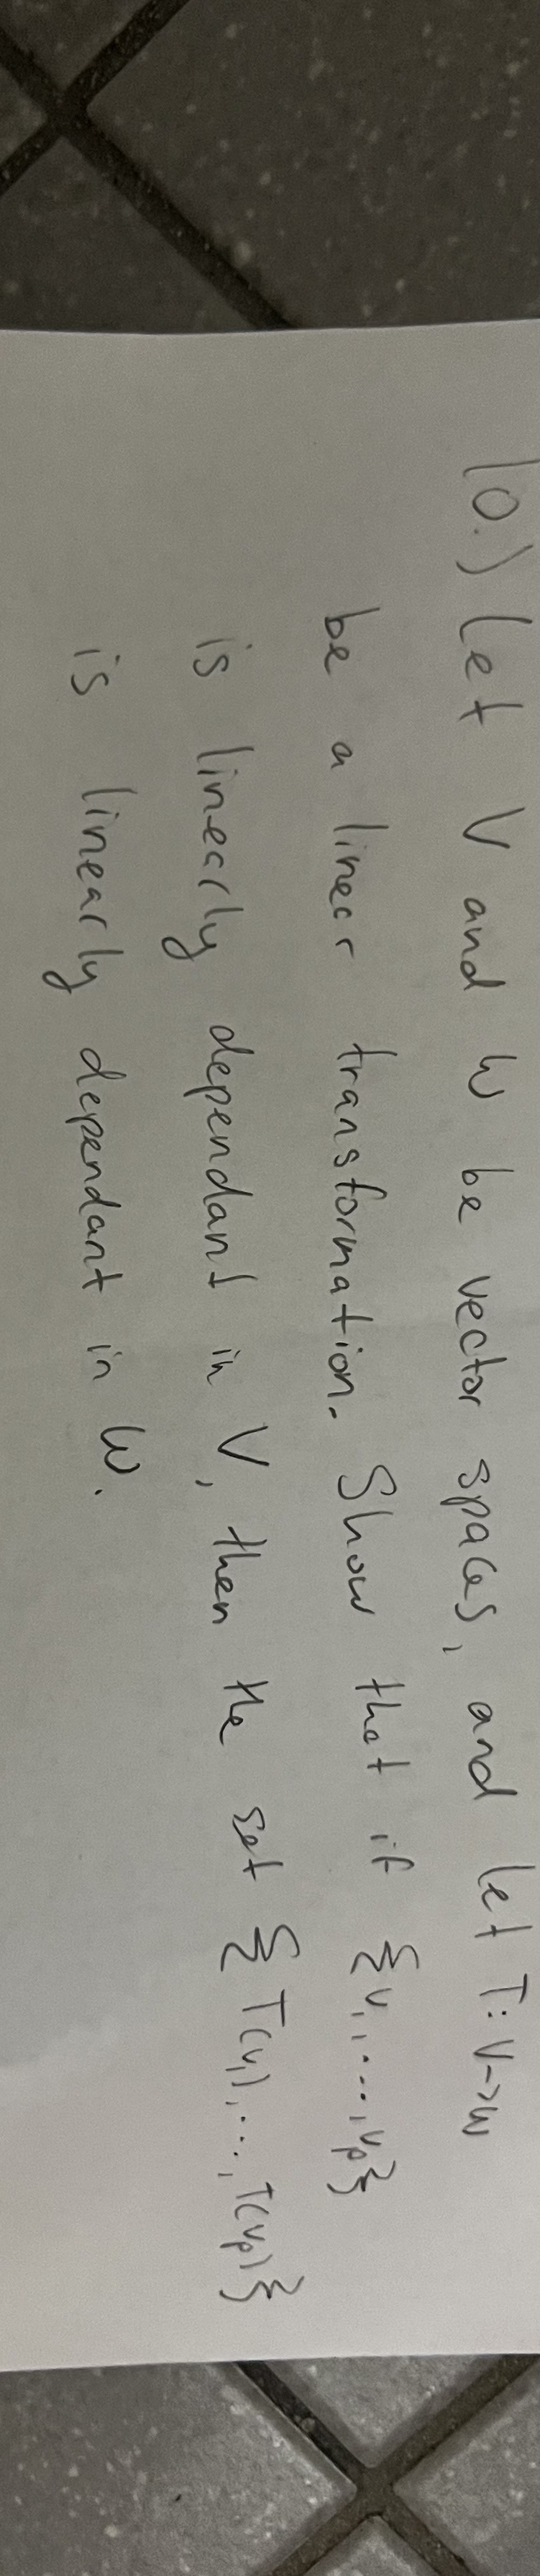 10.) Let V and W be vector spaces, and let T: V->W
be a linear transformation. Show that if {v1, ..., vp}
is linearly dependant in V, then the set {T(v1), ..., T(vp)}
is linearly dependant in W.